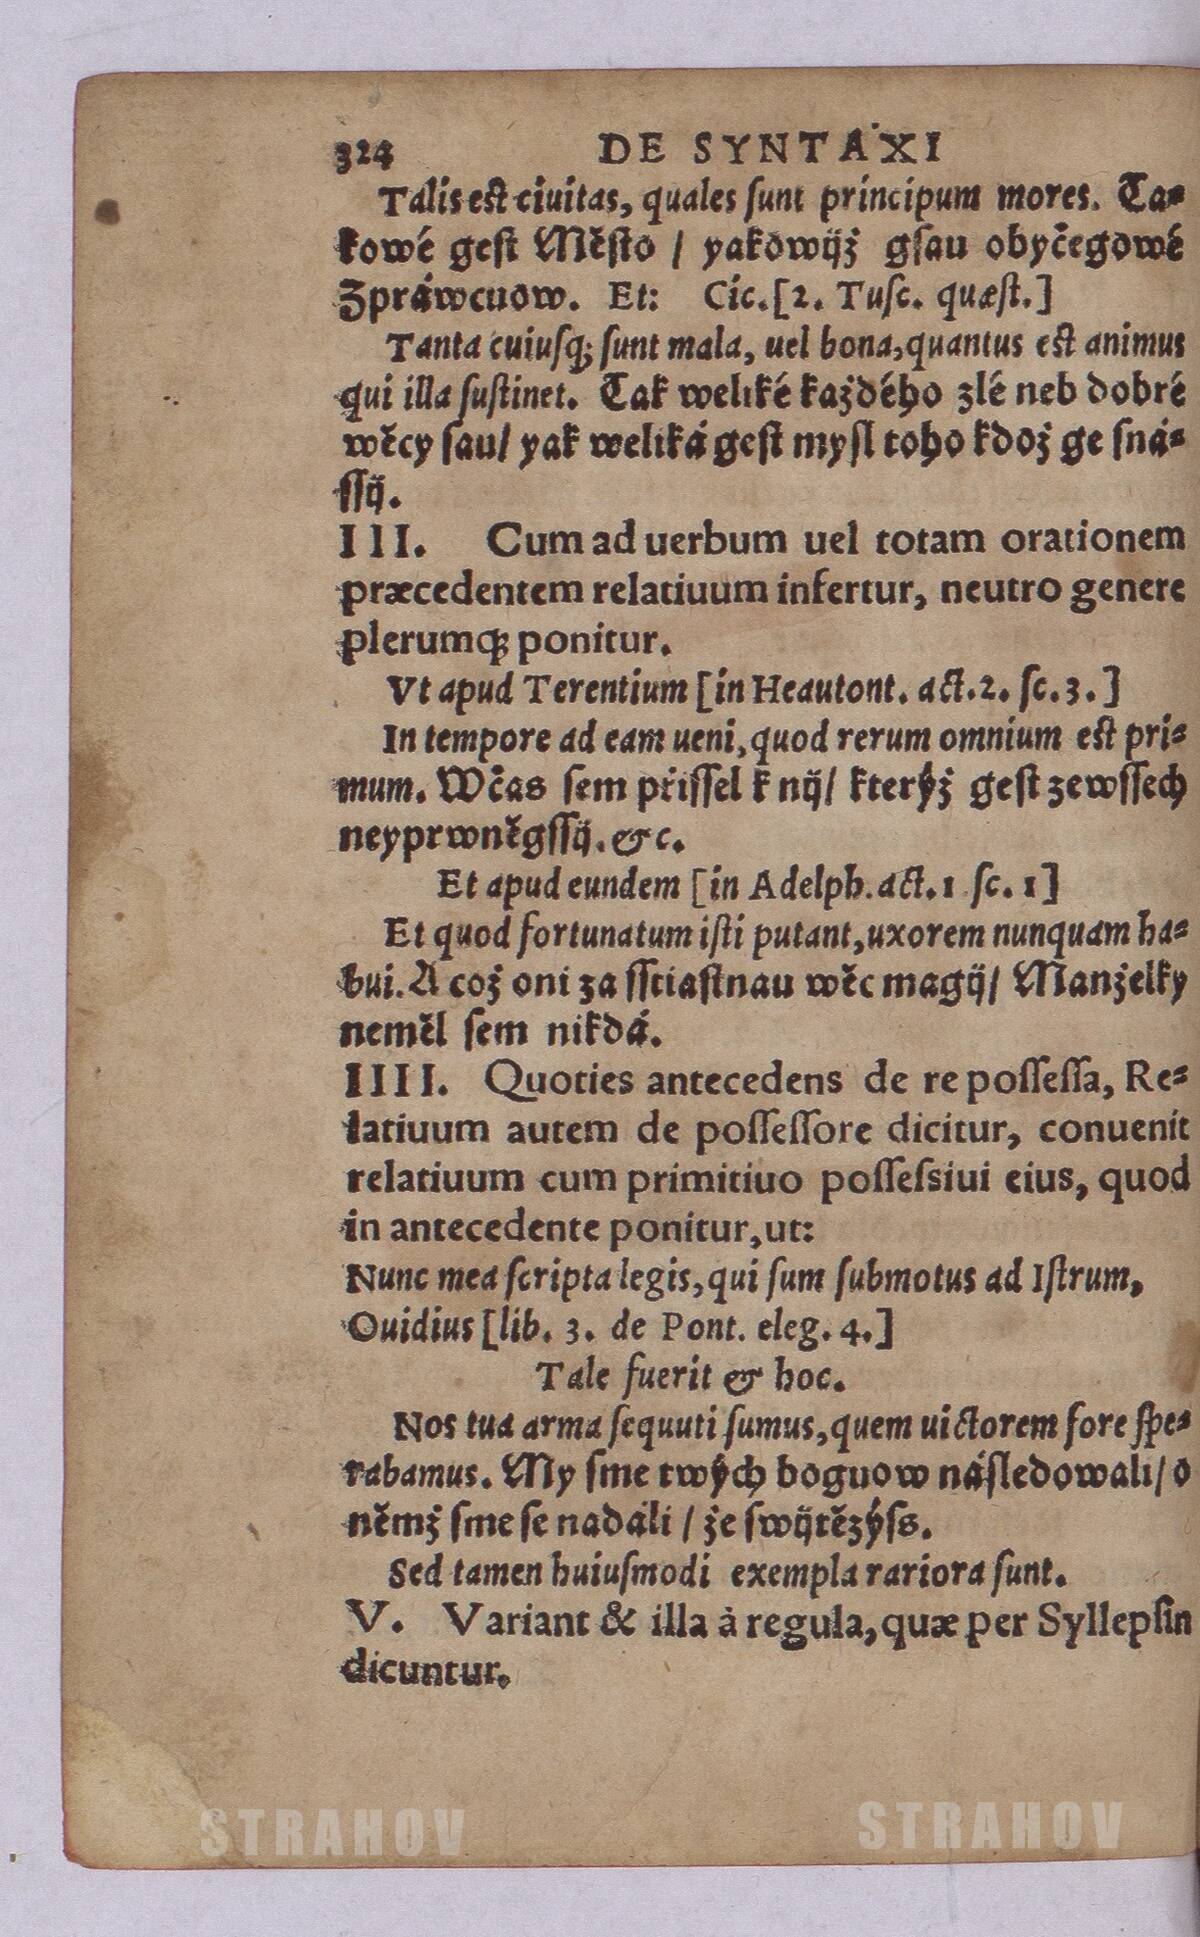 324 DE SYNTAXI
Talis est ciuitas, quales ſunt principum mores. Ta⸗
kowé geſt Město / yakowijž gſau obyčegowé
Zpráwcuow. Et: Cic. [2. Tuſc. quæſt.]
Tanta cuiuſq; ſunt mala, uel bona, quantus est animus
qui illa ſuſtinet. Tak weliké každého zlé neb dobré
wěcy ſau / yak weliká geſt myſl toho kdož ge ſná⸗
ſſij.
III. Cum ad uerbum uel totam orationem
præcedentem relatiuum infertur, neutro genere
plerumq; ponitur.
Vt apud Terentium [in Heautont. act. 2. ſc. 3.]
In tempore ad eam ueni, quod rerum omnium est pri⸗
mum. Wčas ſem přiſſel k nij / kterýž geſt zewſſech
neyprwněgſſij. &c.
Et apud eundem [in Adelph. act. 1 ſc. 1]
Et quod fortunatum iſti putant, uxorem nunquam ha⸗
bui. A což oni za ſſtiaſtnau wěc magij / Manželky
neměl ſem nikdá.
IIII. Quoties antecedens de re poſſeſſa, Re⸗
latiuum autem de poſſeſſore dicitur, conuenit
relatiuum cum primitiuo poſſeſsiui eius, quod
in antecedente ponitur, ut:
Nunc mea ſcripta legis, qui ſum ſubmotus ad Iſtrum,
Ouidius [lib. 3. de Pont. eleg. 4.]
Tale fuerit & hoc.
Nos tua arma ſequuti ſumus, quem uictorem fore ſpe⸗
rabamus. My ſme twých boguow náſledowali / o
němž ſme ſe nadáli / že ſwijtězýſs.
Sed tamen huiuſmodi exempla rariora ſunt.
V. Variant & illa à regula, quæ per Syllepſin
dicuntur.
STRAHOV STRAHOV